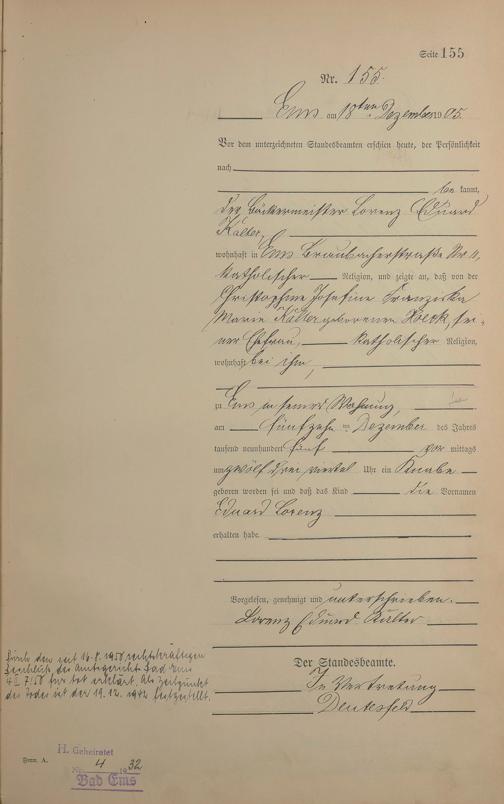 Seite 155
Nr. 155.
Ems am 18ten Dezember 1905.
Vor dem unterzeichneten Standesbeamten erschien heute, der Persönlichkeit
nach
be kannt,
der Bäckermeister Lorenz Eduard
Kalter,
wohnhaft in Ems Braubacherstraße Nr.
katholischer Religion, und zeigte an, daß von der
Christophine Josefine Franziska
Marie Kalter geborenen sei-
ner Ehefrau, katholischer Religion,
wohnhaft bei ihm,
zu Ems in seiner Wohnung,
am fünfzehn ten Dezember des Jahres
tausend neunhundert fünf vor mittags
um zwölf drei viertel Uhr ein Knabe
geboren worden sei und daß das Kind die Vornamen
Eduard Lorenz
erhalten habe.
Vorgelesen, genehmigt und unterschrieben.
Lorenz Eduard Kalter
Der Standesbeamte.
In Vertretung
Deutesfeld
Durch den seit 16.8.1950 rechtskräftigen
Beschluß des Amtsgericht Bad Ems
4 II 7/50 für tot erklärt. Als Zeitpunkt
des Todes ist der 19.12.1942 festgestellt.
Form. A.
H. Geheiratet
Nr. 4 1932
Bad Ems